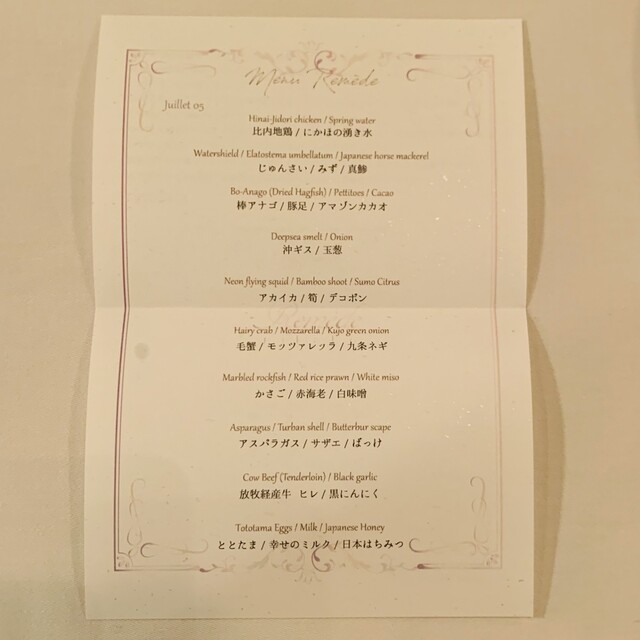 Menu Remède
Juillet 05
Hinai-Jidori chicken / Spring water
比内地鶏 / にかほの湧き水
Watershield / Elatostema umbellatum / Japanese horse mackerel
じゅんさい / みず / 真鯵
Bo-Anago (Dried Hagfish) / Pettitoes / Cacao
棒アナゴ / 豚足 / アマゾンカカオ
Deepsea smelt / Onion
沖ギス / 玉葱
Neon flying squid / Bamboo shoot / Sumo Citrus
アカイカ / 筍 / デコポン
Hairy crab / Mozzarella / Kujo green onion
毛蟹 / モッツァレッラ / 九条ネギ
Marbled rockfish / Red rice prawn / White miso
かさご / 赤海老 / 白味噌
Asparagus / Turban shell / Butterbur scape
アスパラガス / サザエ / ばっけ
Cow Beef (Tenderloin) / Black garlic
放牧経産牛 ヒレ / 黒にんにく
Tototama Eggs / Milk / Japanese Honey
ととたま / 幸せのミルク / 日本はちみつ